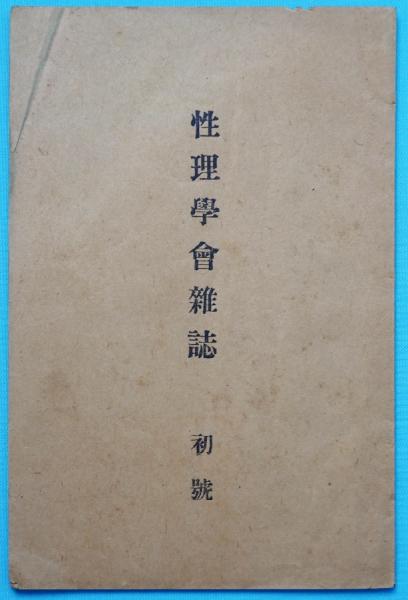 性理學會雜誌 初號